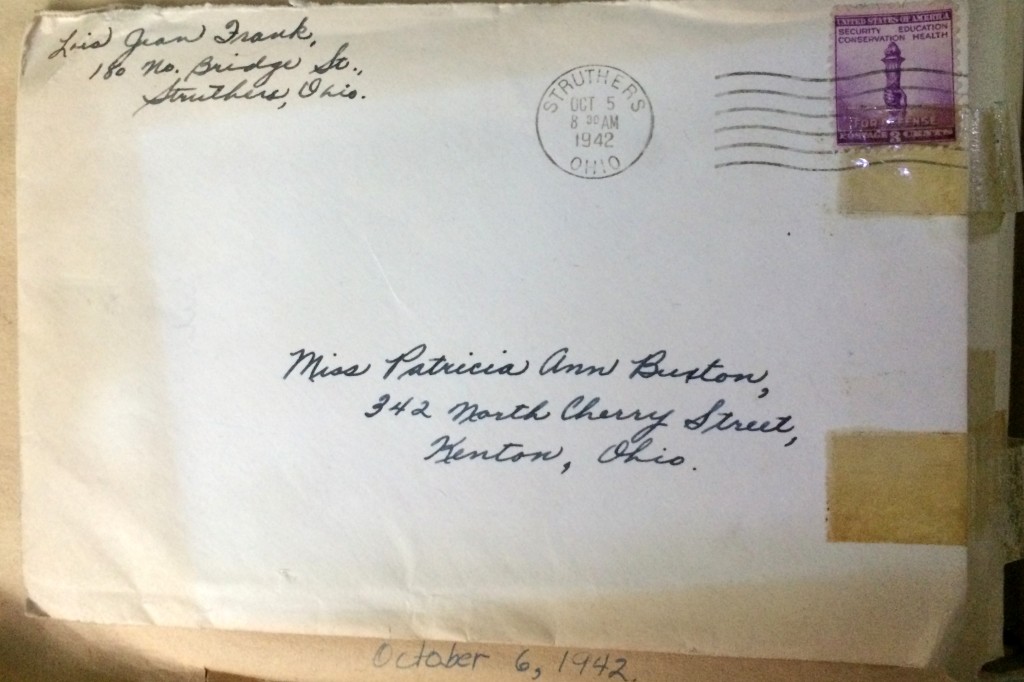 Lois Jean Frank,
180 No. Bridge St.,
Struthers, Ohio.
STRUTHERS
OCT 5
8 30 AM
1942
OHIO
UNITED STATES OF AMERICA
SECURITY EDUCATION
CONSERVATION HEALTH
FOR DEFENSE
POSTAGE 3 CENTS
Miss Patricia Ann Buxton,
342 North Cherry Street,
Kenton, Ohio.
October 6, 1942.